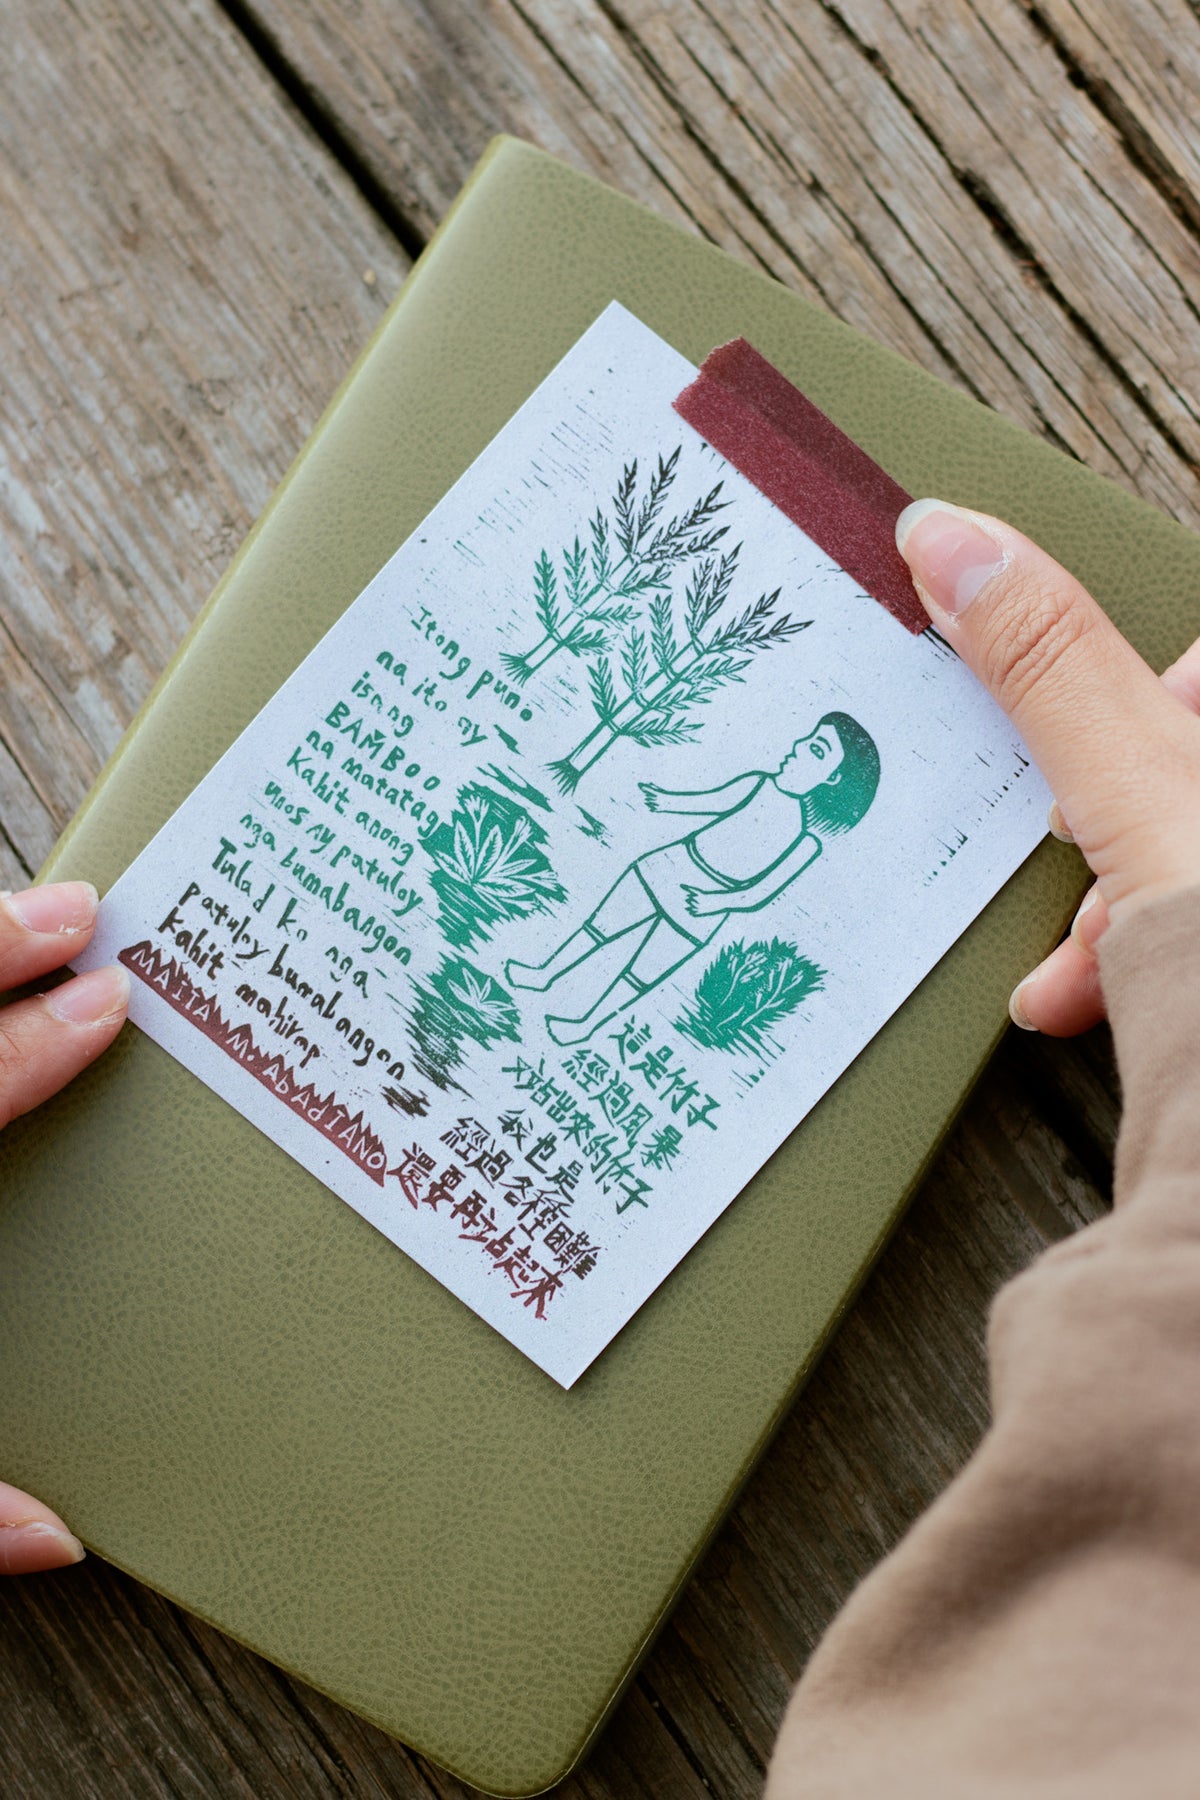 Itong puno
na ito ay
isang
BAMBOO
na matatag
Kahit anong
unos ay patuloy
nga bumabangon
Tulad ko nga
patuloy bumabangon
kahit mahirap
MAITA M. AbAdIANO
這是竹子
經過風暴
又站出來的竹子
我也是
經過各種困難
還要再站起來